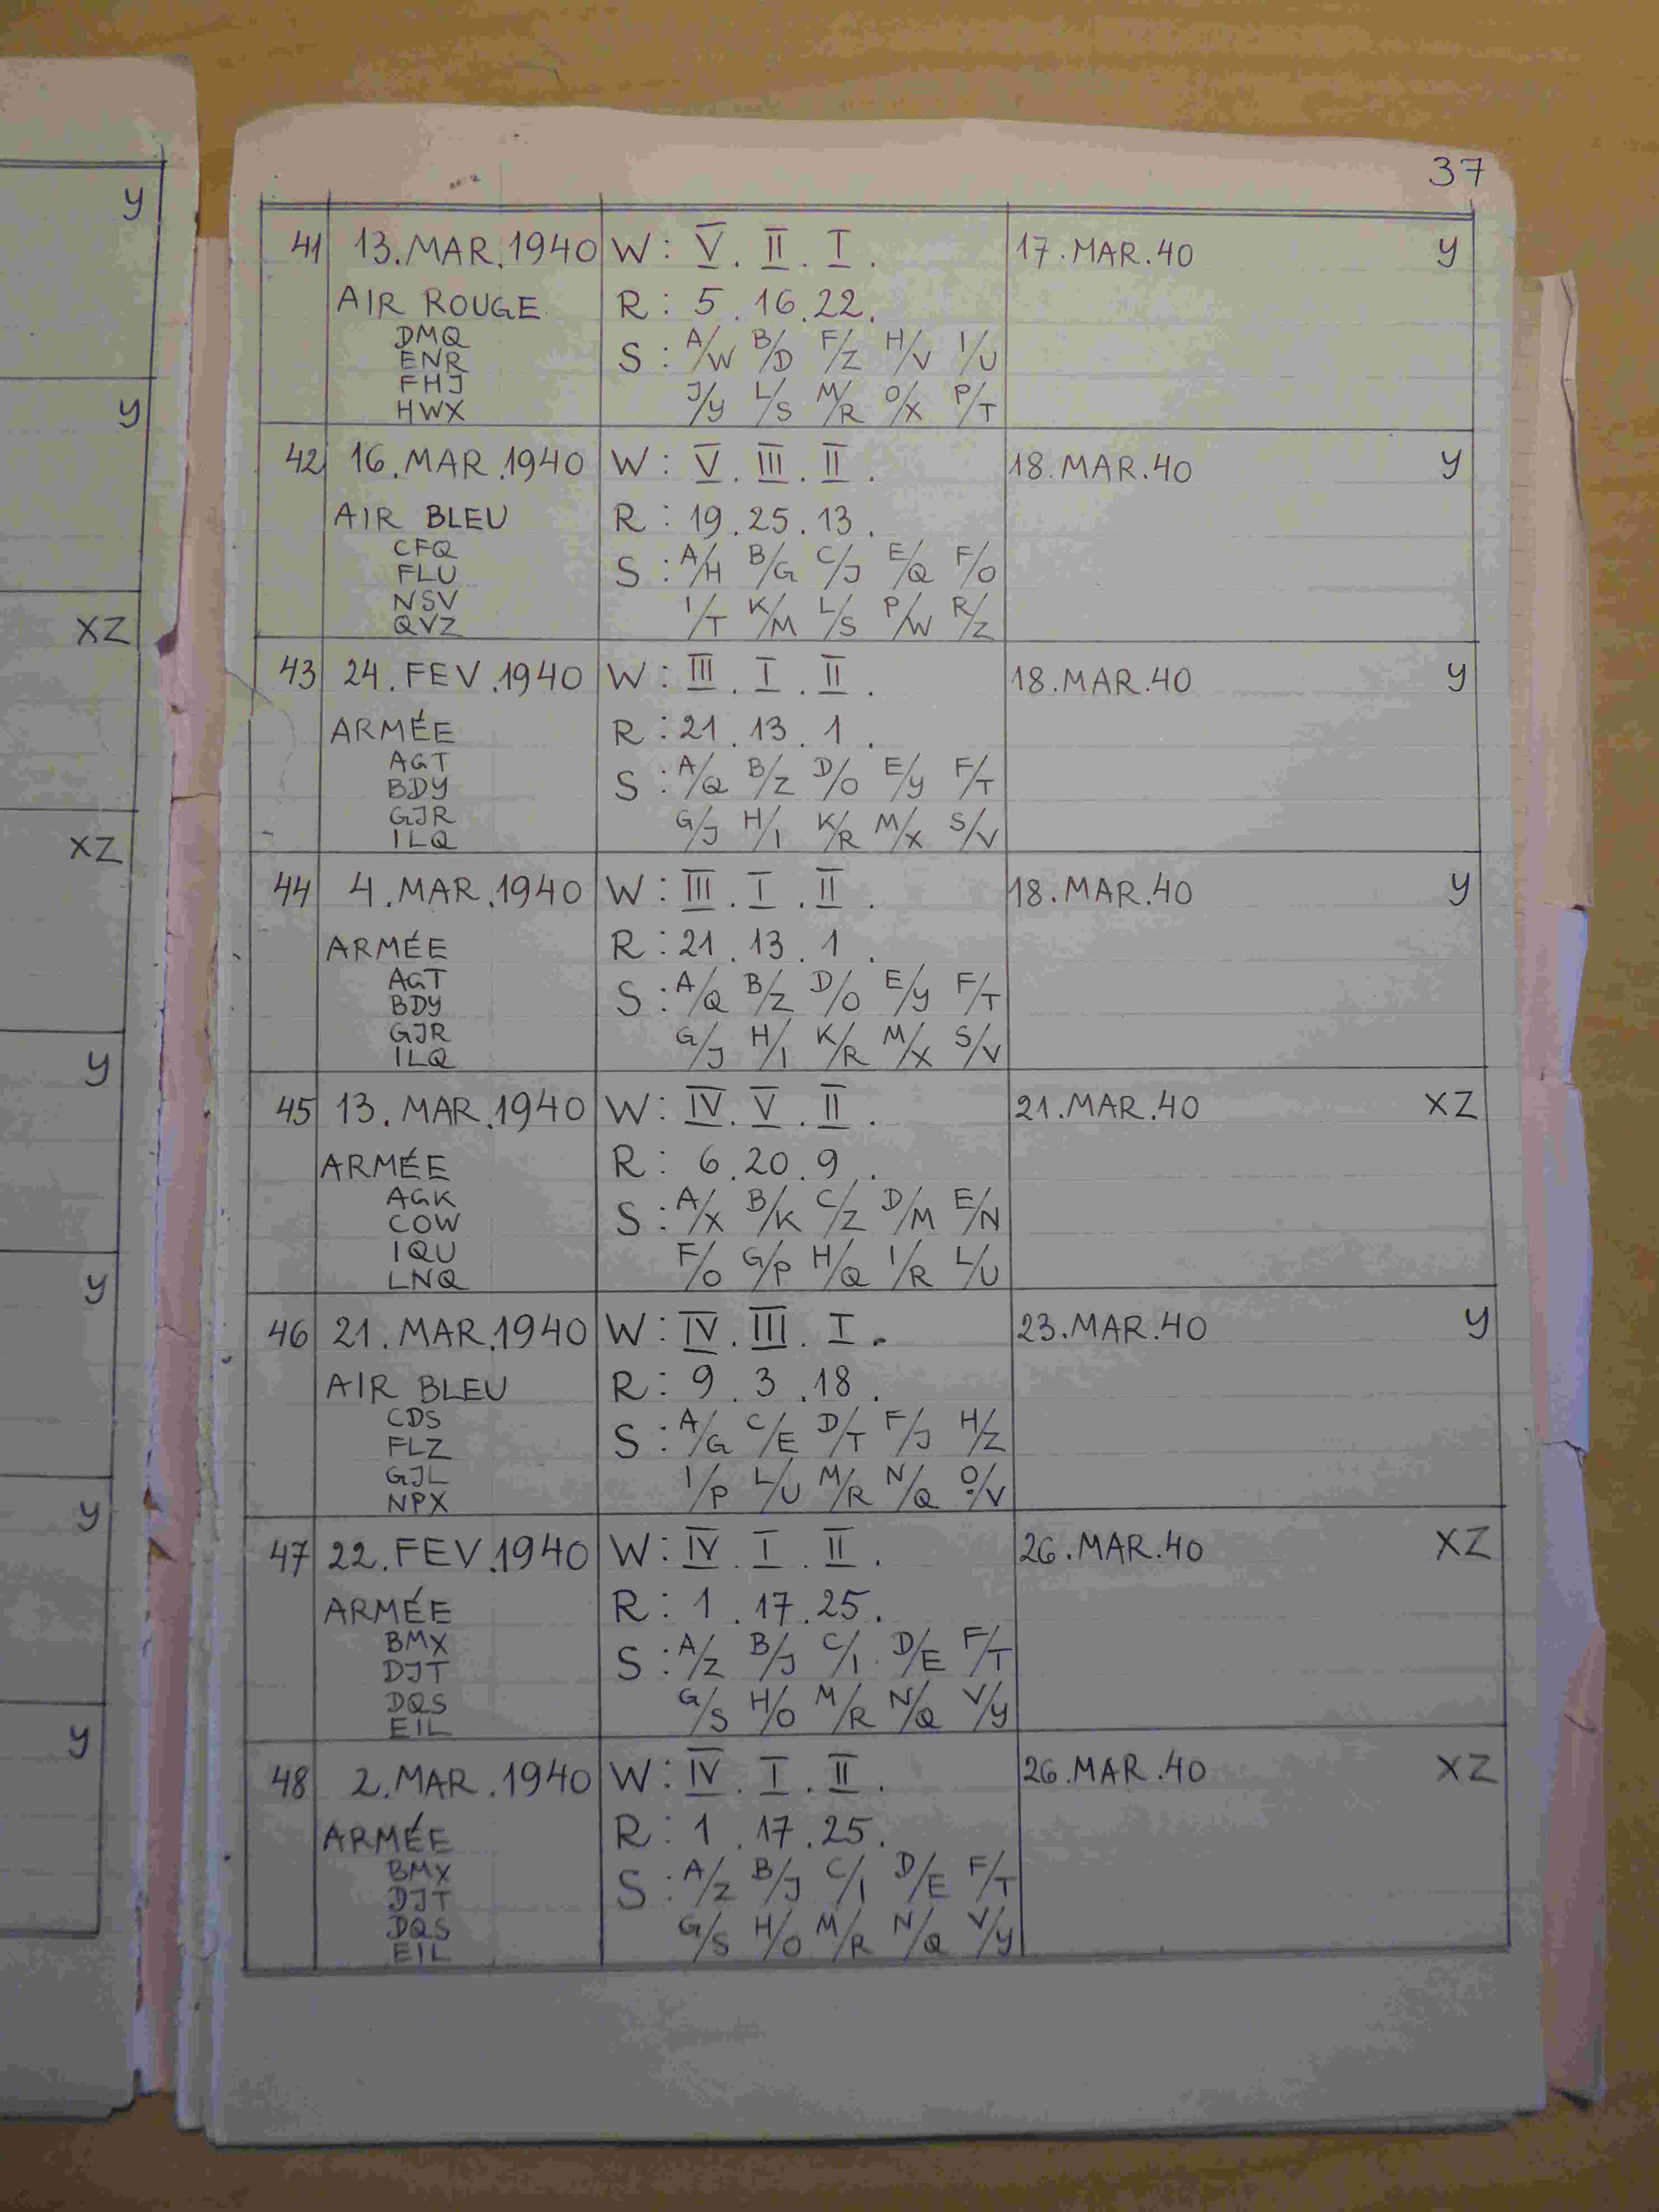 y
y
XZ
XZ
y
y
y
y
37
41 13.MAR.1940 W: V. II. I. 17.MAR.40 y
AIR ROUGE R: 5.16.22.
DMQ
ENR S: A/W B/D F/Z H/V I/U
FHJ
HWX J/y L/S M/R O/X P/T
42 16.MAR.1940 W: V. III. II. 18.MAR.40 y
AIR BLEU R: 19.25.13.
CFQ
FLU S: A/H B/G C/J E/Q F/O
NSV
QVZ I/T K/M L/S P/W R/Z
43 24.FEV.1940 W: III. I. II. 18.MAR.40 y
ARMÉE R: 21.13.1.
AGT
BDY S: A/Q B/Z D/O E/y F/T
GJR
ILQ G/J H/I K/R M/X S/V
44 4.MAR.1940 W: III. I. II. 18.MAR.40 y
ARMÉE R: 21.13.1.
AGT
BDY S: A/Q B/Z D/O E/y F/T
GJR
ILQ G/J H/I K/R M/X S/V
45 13.MAR.1940 W: IV. V. II. 21.MAR.40 XZ
ARMÉE R: 6.20.9.
AGK
COW S: A/X B/K C/Z D/M E/N
IQU
LNQ F/O G/P H/Q I/R L/U
46 21.MAR.1940 W: IV. III. I. 23.MAR.40 y
AIR BLEU R: 9.3.18.
CDS
FLZ S: A/G C/E D/T F/J H/Z
GJL
NPX I/P L/U M/R N/Q O/V
47 22.FEV.1940 W: IV. I. II. 26.MAR.40 XZ
ARMÉE R: 1.17.25.
BMX
DJT S: A/Z B/J C/I D/E F/T
DQS
EIL G/S H/O M/R N/Q V/y
48 2.MAR.1940 W: IV. I. II. 26.MAR.40 XZ
ARMÉE R: 1.17.25.
BMX
DJT S: A/Z B/J C/I D/E F/T
DQS
EIL G/S H/O M/R N/Q V/y